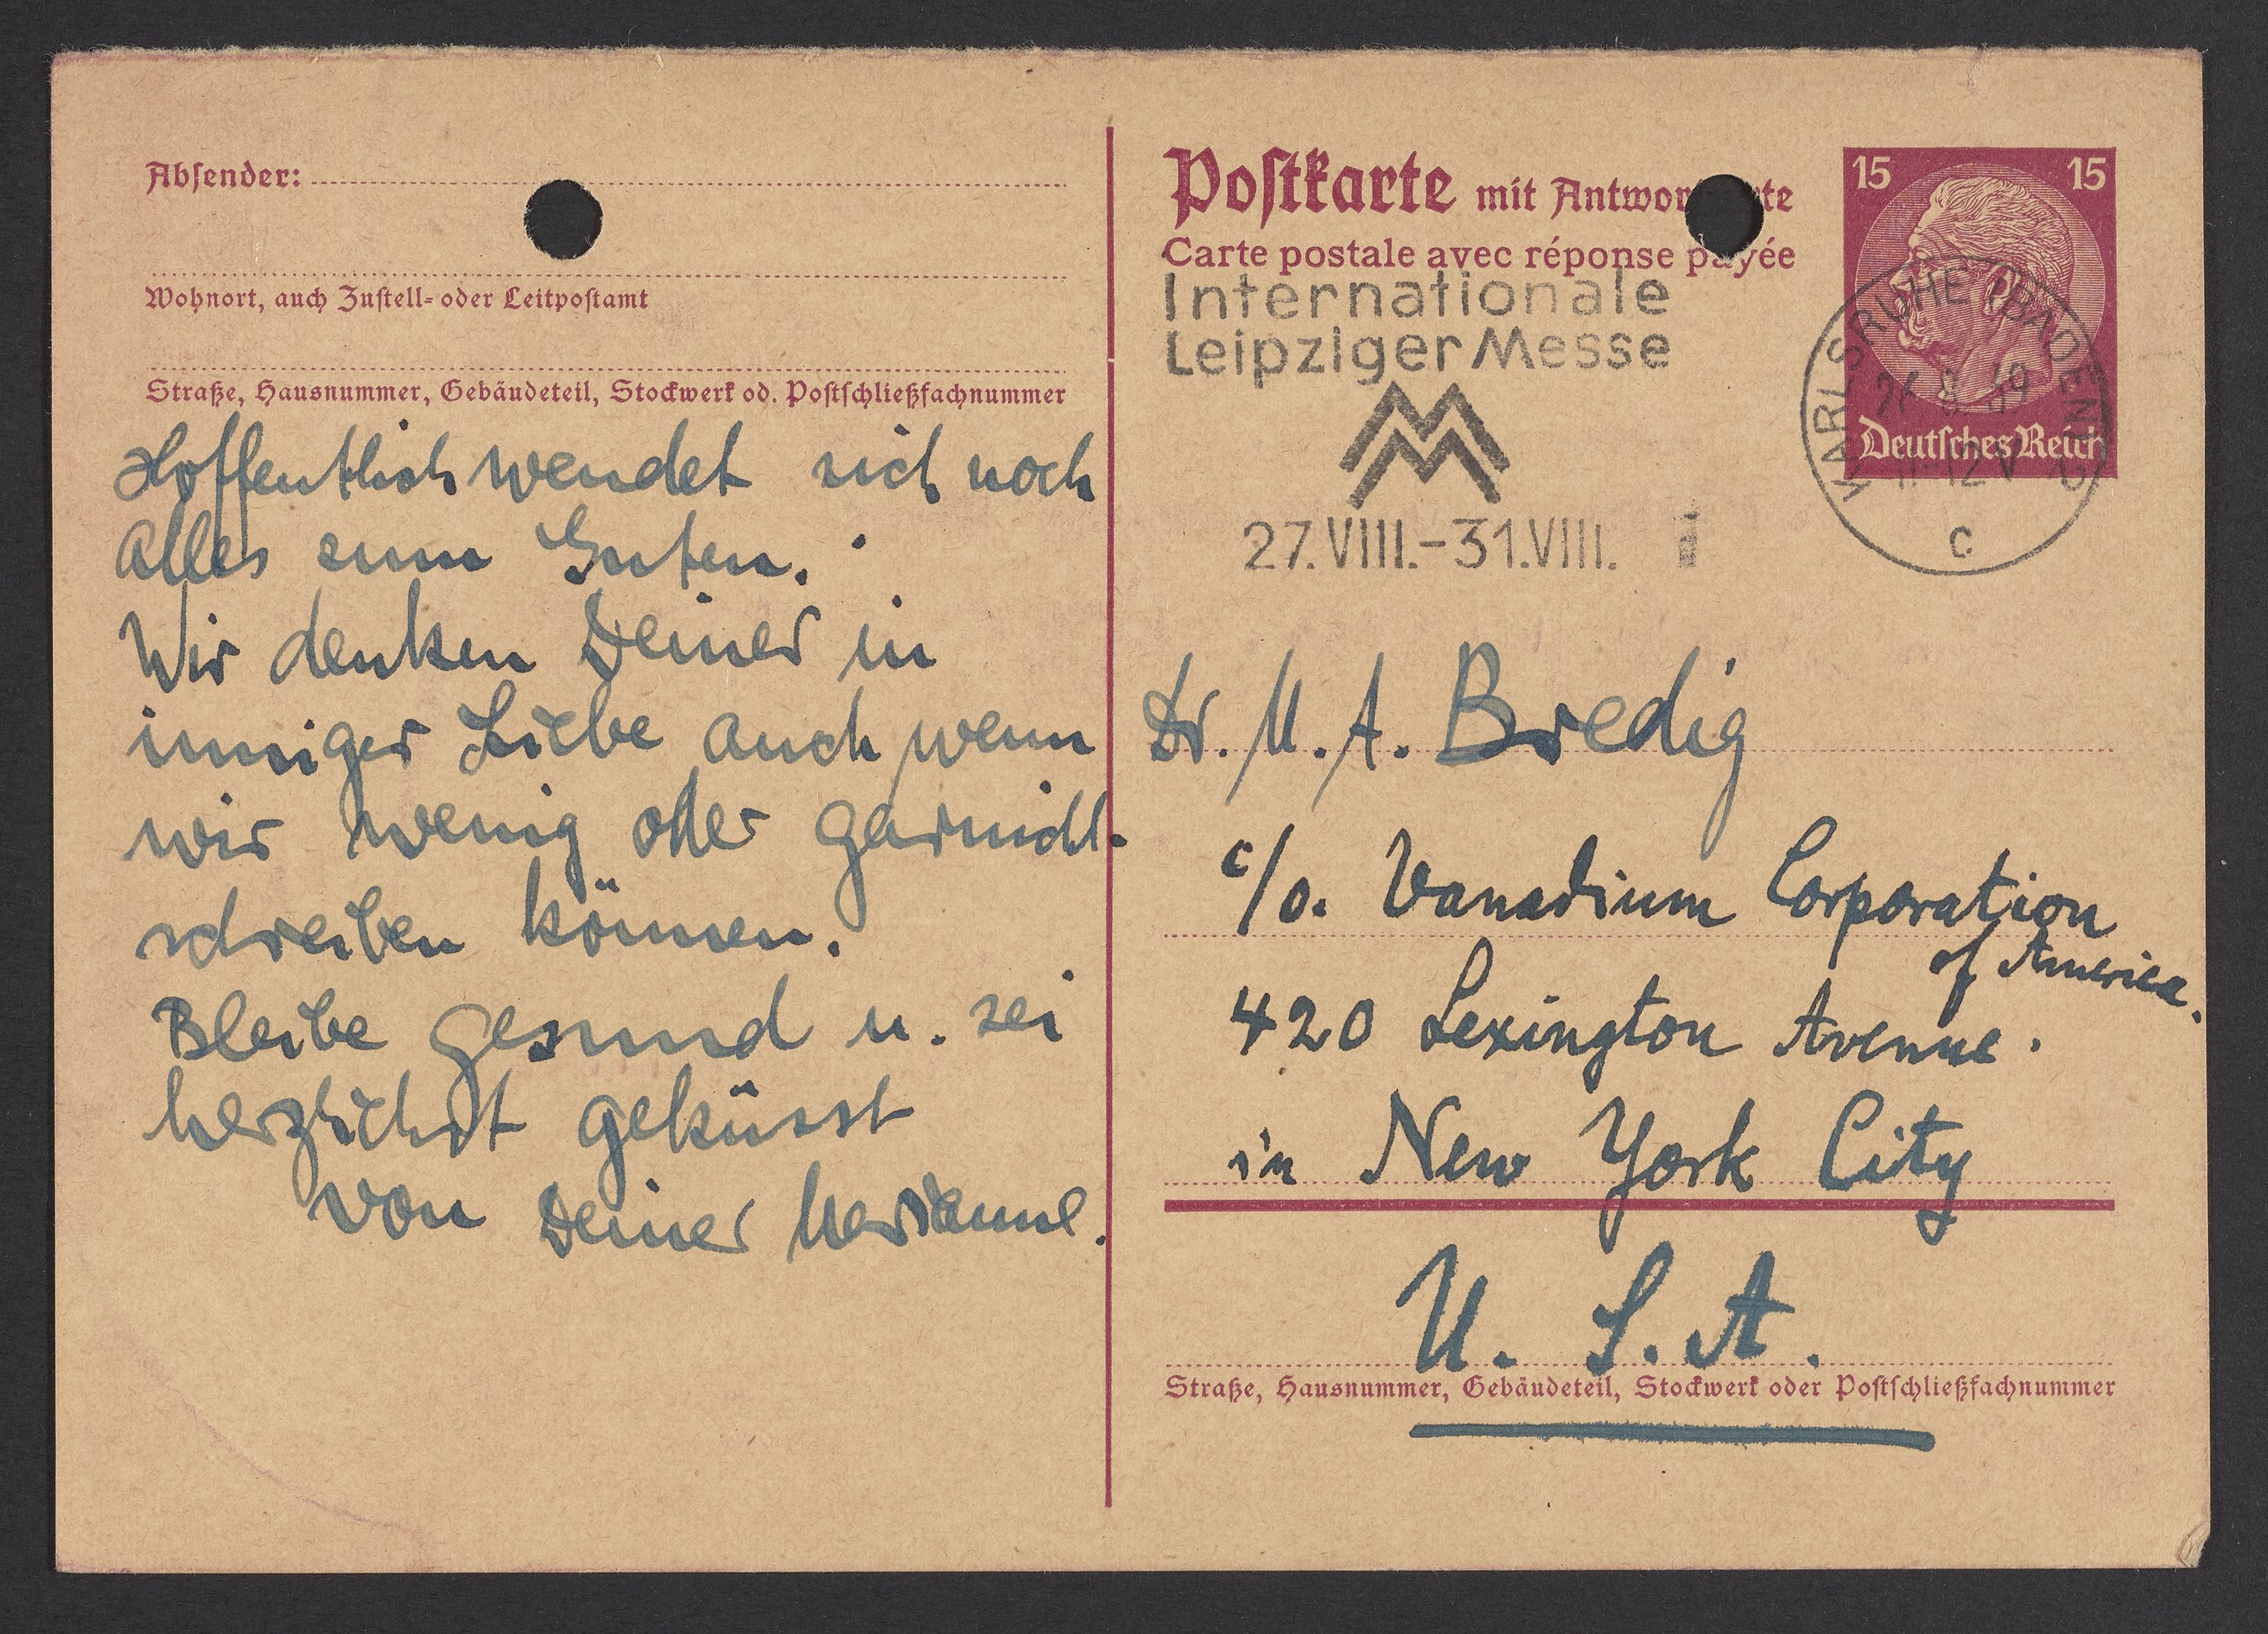 Absender:
Wohnort, auch Zustell- oder Leitpostamt
Straße, Hausnummer, Gebäudeteil, Stockwerk od. Postschließfachnummer
Hoffentlich wendet sich noch
Alles zum Guten.
Wir denken Deiner in
inniger Liebe auch wenn
wir wenig oder garnicht
schreiben können.
Bleibe gesund u. sei
herzlichst geküsst
von Deiner Marianne.
Postkarte mit Antwor te
Carte postale avec réponse payée
Internationale
Leipziger Messe
27.VIII.-31.VIII.
15 15
Deutsches Reich
KARLSRUHE (BADEN)
8. 39
11-12 V
c
Dr. M. A. Bredig
c/o. Vanadium Corporation
of America.
420 Lexington Avenue.
in New York City
U. S. A.
Straße, Hausnummer, Gebäudeteil, Stockwerk oder Postschließfachnummer